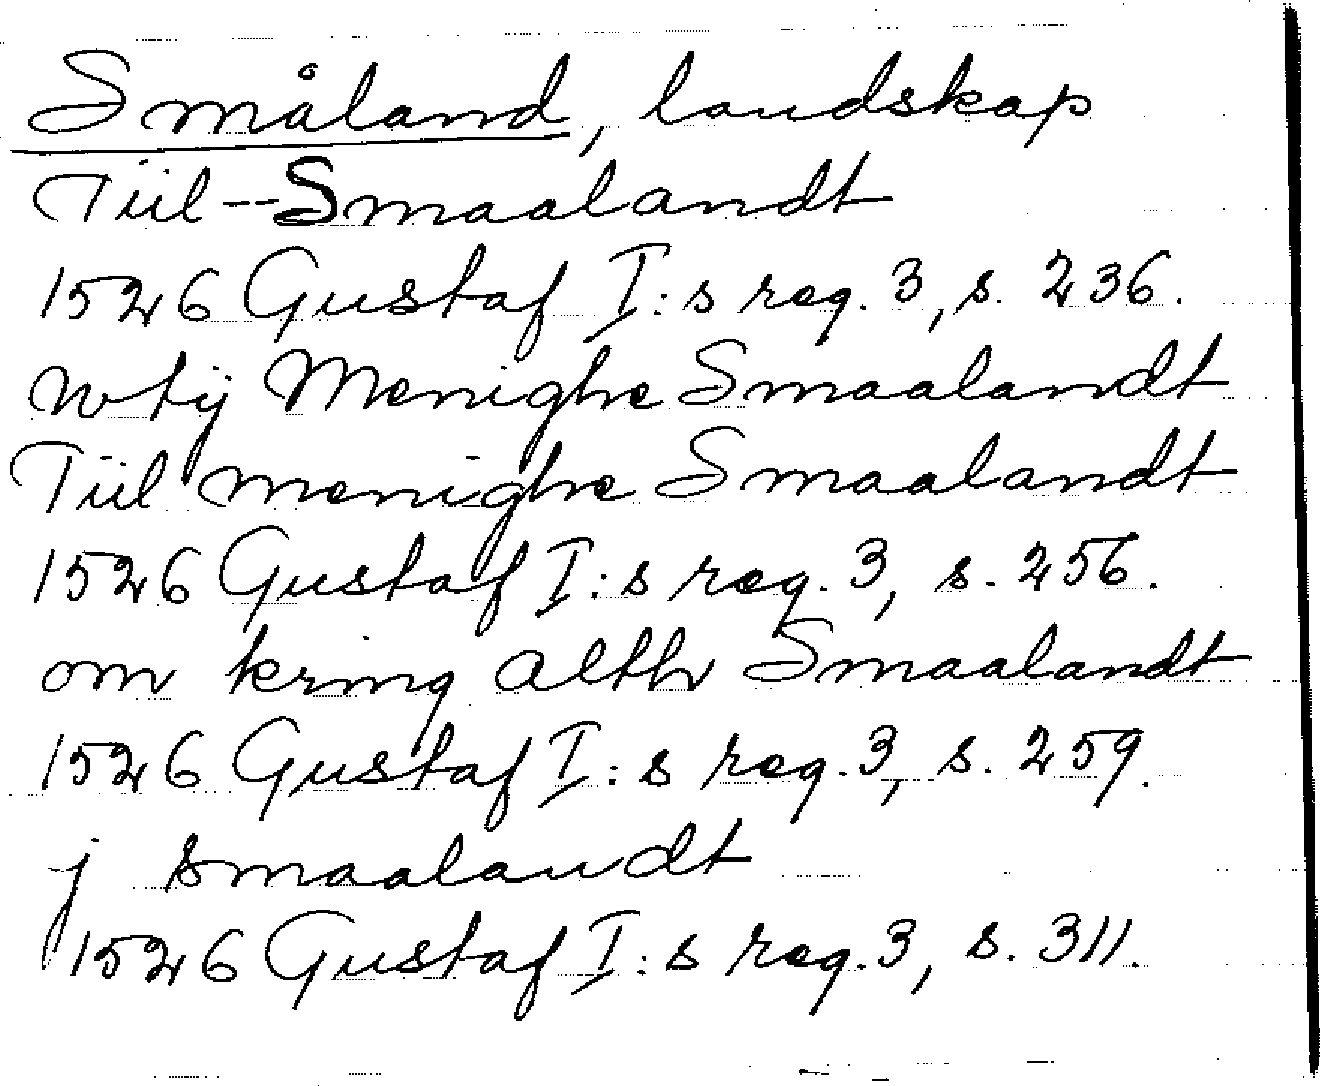 Småland, landskap
Tiil -- Smaalandt
1526 Gustaf I:s reg. 3, s. 236.
wtij Menighe Smaalandt
Tiil menighe Smaalandt
1526 Gustaf I:s reg. 3, s. 256.
om kring alth Smaalandt
1526 Gustaf I:s reg. 3, s. 259.
j smaalandt
1526 Gustaf I:s reg. 3, s. 311.